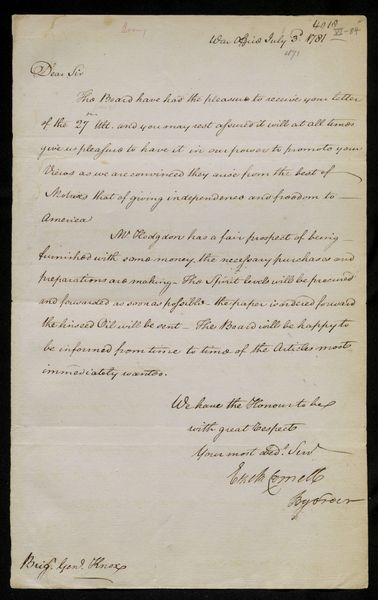 4018
War Office July 3d 1781
VI-84
Dear Sir
The Board have had the pleasure to receive your letter
of the 27th Ult. and you may rest assured it will at all times
give us pleasure to have it in our power to promote your
Views as we are convinced they arise from the best of
Motives that of giving independence and freedom to
America
Mr Hodgdon has a fair prospect of being
furnished with some money. the necessary purchases and
preparations are making - The Spirit levels will be procured
and forwarded as soon as possible - the paper is ordered forward
the linseed Oil will be sent - The Board will be happy to
be informed from time to time of the Articles most
immediately wanted.
We have the Honour to be
with great respects
Your most Obdt. Servt
Ezek Cornell
By order
Brig. Genl. Knox